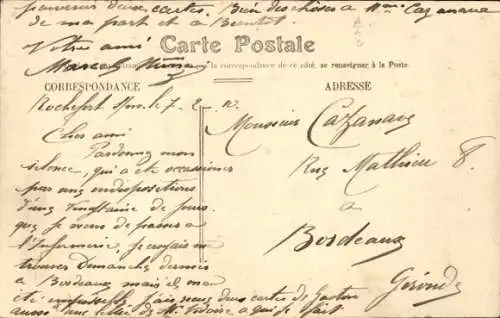 parvenir deux cartes. Bien des choses à Mme Cazanave
de ma part et à Bientôt
Votre ami
Marcel
Carte Postale
la correspondance de ce côté, se renseigner à la Poste.
CORRESPONDANCE
ADRESSE
Rochefort le 7
Monsieur Cazanave
Rue Mathieu 8.
à
Bordeaux
Gironde
Cher ami
Pardonnez mon
silence, qui a été occasionné
par une indisposition
d'une vingtaine de jours
que je viens de passer à
l'Infirmerie, je croyais me
trouver Dimanche dernier
à Bordeaux mais il m'a
été impossible, fais deux cartes de Gaston
aussi une de Mr a qui je fait